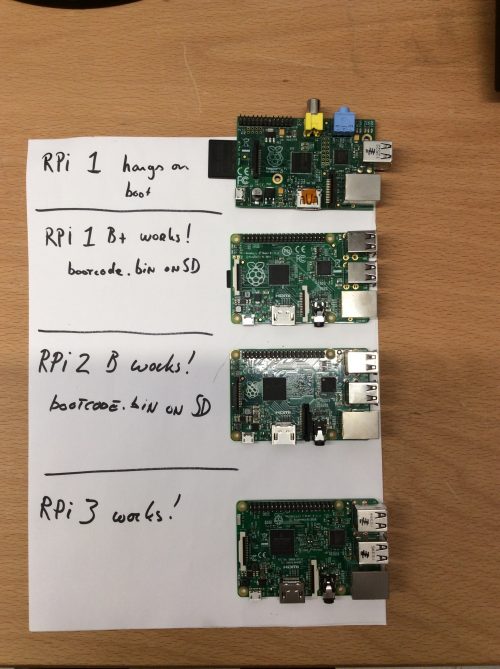 RPi 1 hangs on
boot
RPi 1 B+ works!
bootcode.bin on SD
RPi 2 B works!
BOOTCODE.BIN ON SD
RPi 3 works!
HDMI
HDMI
HDMI